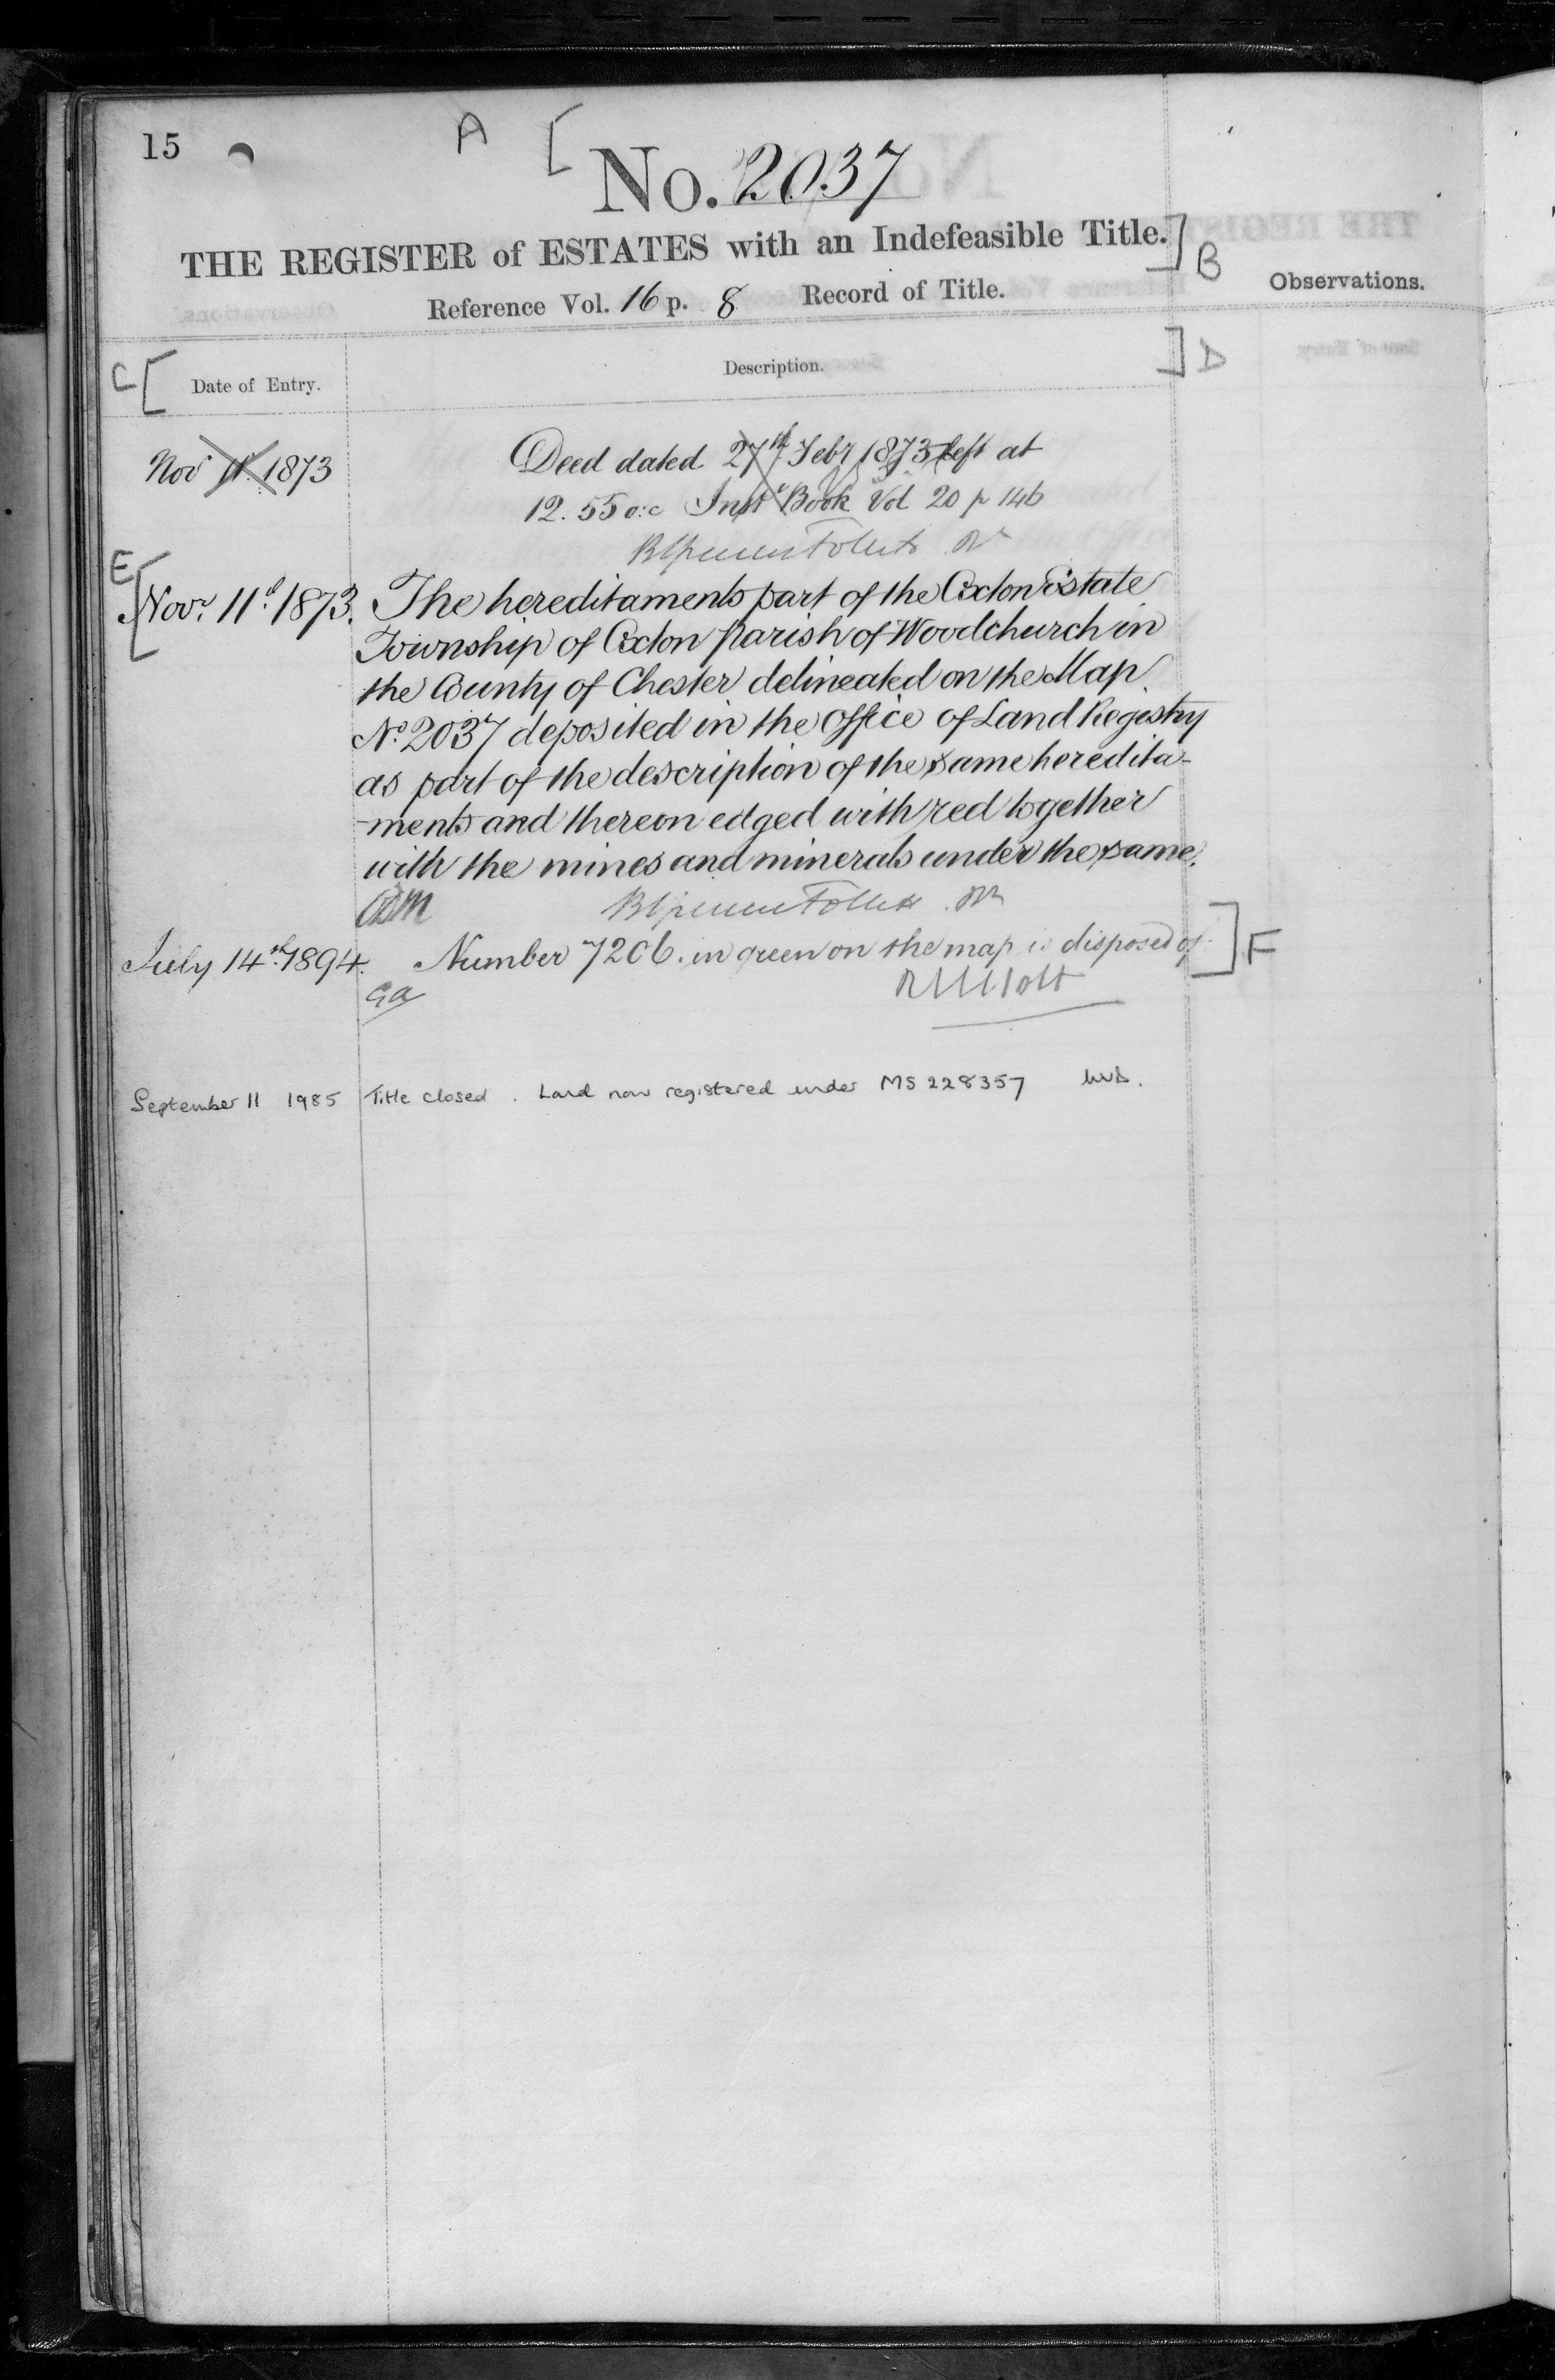 15
A [
No. 2037
THE REGISTER of ESTATES with an Indefeasible Title. ] B
Reference Vol. 16 p. 8 Record of Title.
Observations.
C [ Date of Entry.
Description. ] D
Nov 11 1873
Deed dated 27th Feby 1873 left at
12.55 o:c Inst Book Vol 20 p 146
E [ Novr. 11th 1873.
The hereditaments part of the Oxton Estate
Township of Oxton Parish of Woodchurch in
the County of Chester delineated on the Map
No. 2037 deposited in the Office of Land Registry
as part of the description of the same heredita-
-ments and thereon edged with red together
with the mines and minerals under the same.
July 14th 1894. Number 7206. in green on the map is disposed of. ] F
GA
September 11 1985 Title closed. Land now registered under MS 228357